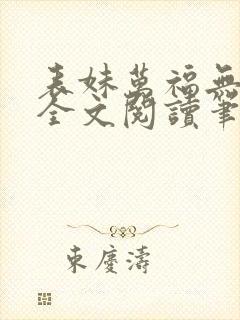 表妹萬福無
全文閱讀筆
東慶濤